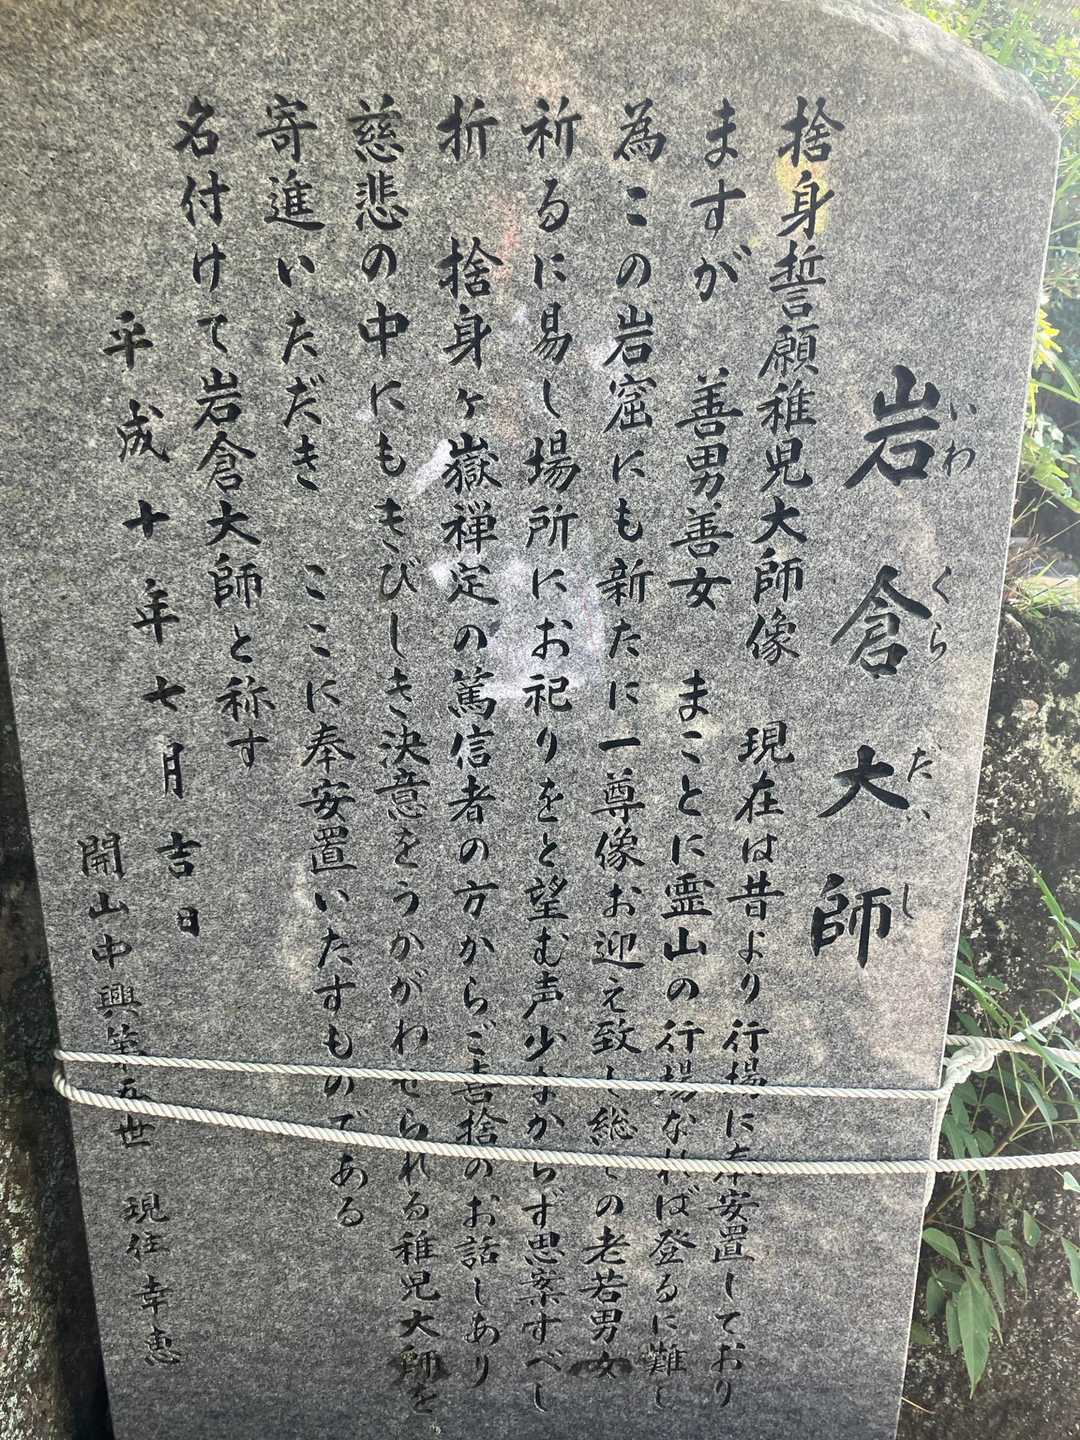 岩倉大師
いわくらだいし
捨身誓願稚児大師像　現在は昔より行場に奉安置しており
ますが　善男善女　まことに霊山の行場なれば登るに難し
為この岩窟にも新たに一尊像お迎え致し総ての老若男女
祈るに易し場所にお祀りをと望む声少なからず思案すべし
折　捨身ヶ嶽禅定の篤信者の方からご喜捨のお話しあり
慈悲の中にもきびしき決意をうかがわせられる稚児大師を
寄進いただき　ここに奉安置いたすものである
名付けて岩倉大師と称す
平成十年七月吉日
開山中興第五世　現住　幸恵